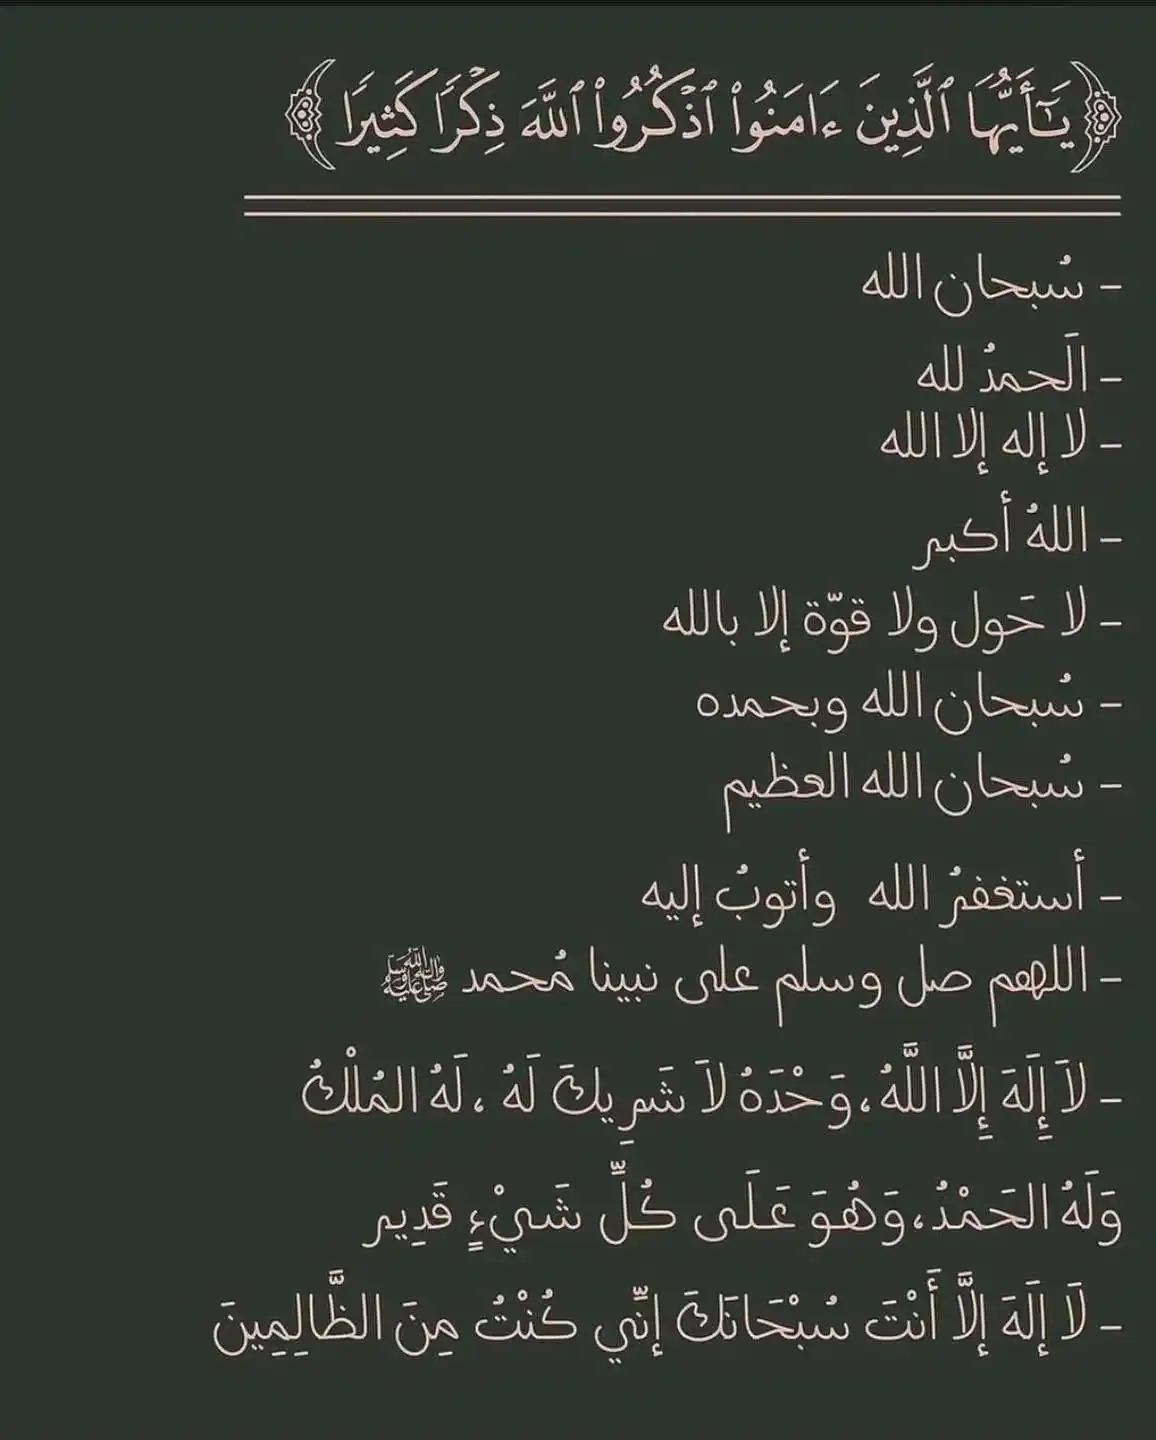 ﴿يَـٰٓأَيُّهَا ٱلَّذِينَ ءَامَنُوا۟ ٱذْكُرُوا۟ ٱللَّهَ ذِكْرًا كَثِيرًا﴾
- سُبحان الله
- الَحمدُ لله
- لا إله إلا الله
- اللهُ أكبر
- لا حَول ولا قوّة إلا بالله
- سُبحان الله وبحمده
- سُبحان الله العظيم
- أستغفرُ الله وأتوبُ إليه
- اللهم صل وسلم على نبينا مُحمد ﷺ
- لاَ إِلَهَ إِلَّا اللَّهُ، وَحْدَهُ لاَ شَرِيكَ لَهُ ، لَهُ المُلْكُ
وَلَهُ الحَمْدُ، وَهُوَ عَلَى كُلِّ شَيْءٍ قَدِير
- لَا إلَهَ إلَّا أَنْتَ سُبْحَانَكَ إنِّي كُنْتُ مِنَ الظَّالِمِينَ